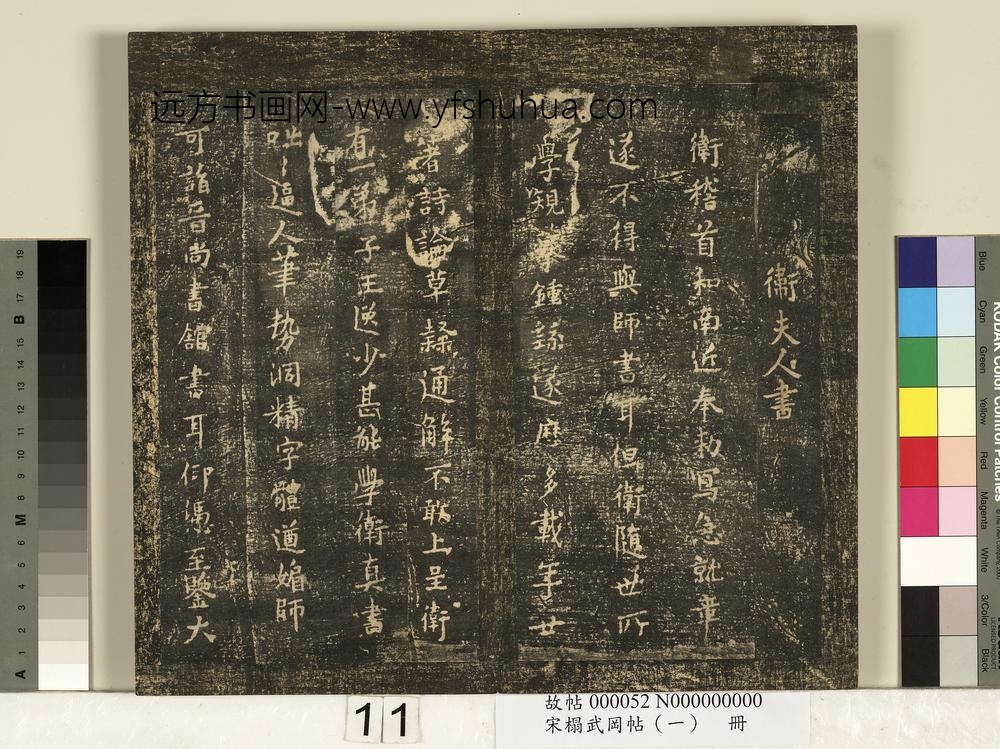 远方书画网-www.yfshuhua.com
衛夫人書
衛稽首和南近奉敕寫急就章
遂不得與師書耳但衛隨世所
學規摹鍾繇遂歷多載年廿
著詩論草隸通解不敢上呈衛
有一弟子王逸少甚能學衛真書
咄〻逼人筆勢洞精字體遒媚師
可詣晉尚書館書耳仰憑至鑒大
11
故帖 000052 N000000000
宋榻武岡帖（一） 冊
19 18 17 B 15 14 13 12 11 10 9 8 M 6 5 4 3 2 1 A
Blue
Cyan
Green
Yellow
Red
Magenta
White
3/Color
Black